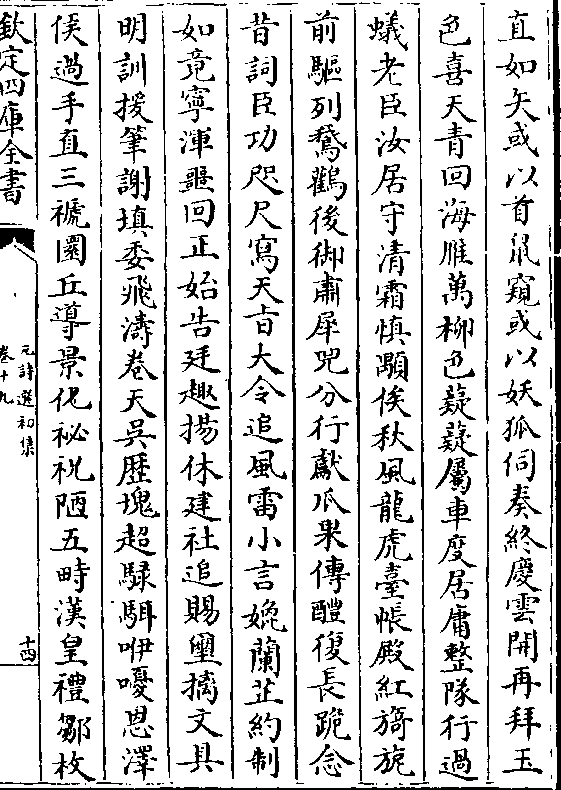 直如矢或以首鼠窺或以妖狐伺奏終慶雲開再拜玉
色喜天青回海雁萬柳色薿薿屬車度居庸整隊行過
蟻老臣汝居守清霜慎顒俟秋風龍虎臺帳殿紅旖旎
前驅列鵞鸛後御肅犀兕分行獻瓜果傳醴復長跪念
昔詞臣功咫尺寫天旨大令追風雷小言婉蘭芷約制
如竟寧渾噩回正始告廷趣揚休建社追賜璽摛文具
明訓援筆謝填委飛濤卷天吳歴塊超騄駬咿嚘恩澤
侯過手直三褫圜丘導景化祕祝陋五畤漢皇禮鄒枚
欽定四庫全書
元詩選初集
卷十九
十四